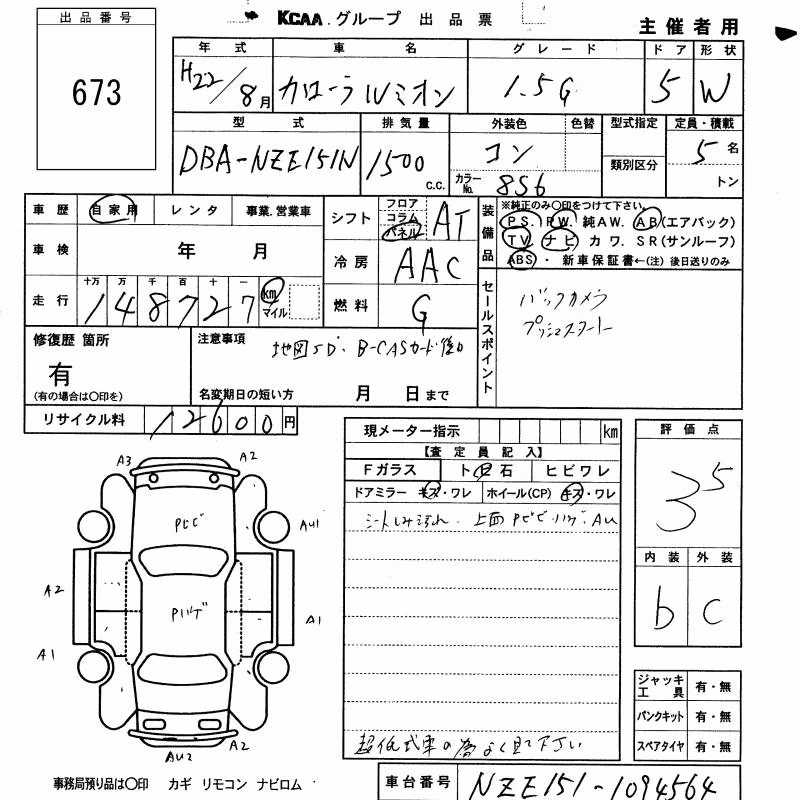 出品番号
673
KCAA グループ 出品票
主催者用
年式 車名 グレード ドア 形状
H22/8月 カローラルミオン 1.5G 5 W
型式 排気量 外装色 色替 型式指定 定員・積載
DBA-NZE151N 1500 c.c. コン 類別区分 5名
カラーNo. 8S6 トン
車歴 自家用 レンタ 事業.営業車
シフト フロア コラム パネル AT
装備品 ※純正のみ〇印をつけて下さい。
PS. PW. 純AW. AB(エアバック)
TV ナビ カワ. SR(サンルーフ)
ABS・新車保証書←(注)後日送りのみ
車検 年 月
冷房 AAC
走行 十万 万 千 百 十 一
148727 km マイル
燃料 G
セールスポイント
バックカメラ
プッシュスタート
修復歴 箇所
有
(有の場合は〇印を)
注意事項
地図SD・B-CASカード後日
名変期日の短い方 月 日まで
リサイクル料 12600円
現メーター指示 km
【査定員記入】
Fガラス ト石 ヒビワレ
ドアミラー キズ・ワレ ホイール(CP) キズ・ワレ
シートしみ汚れ. 上面PビビハゲAU
超低式車の為よく見て下さい
評価点
3.5
内装 外装
b C
ジャッキ工具 有・無
パンクキット 有・無
スペアタイヤ 有・無
A3 A2
Pビビ AU1
A2
Pハゲ A1
A1
AU2 A2
事務局預り品は〇印 カギ リモコン ナビロム
車台番号 NZE151-1094564